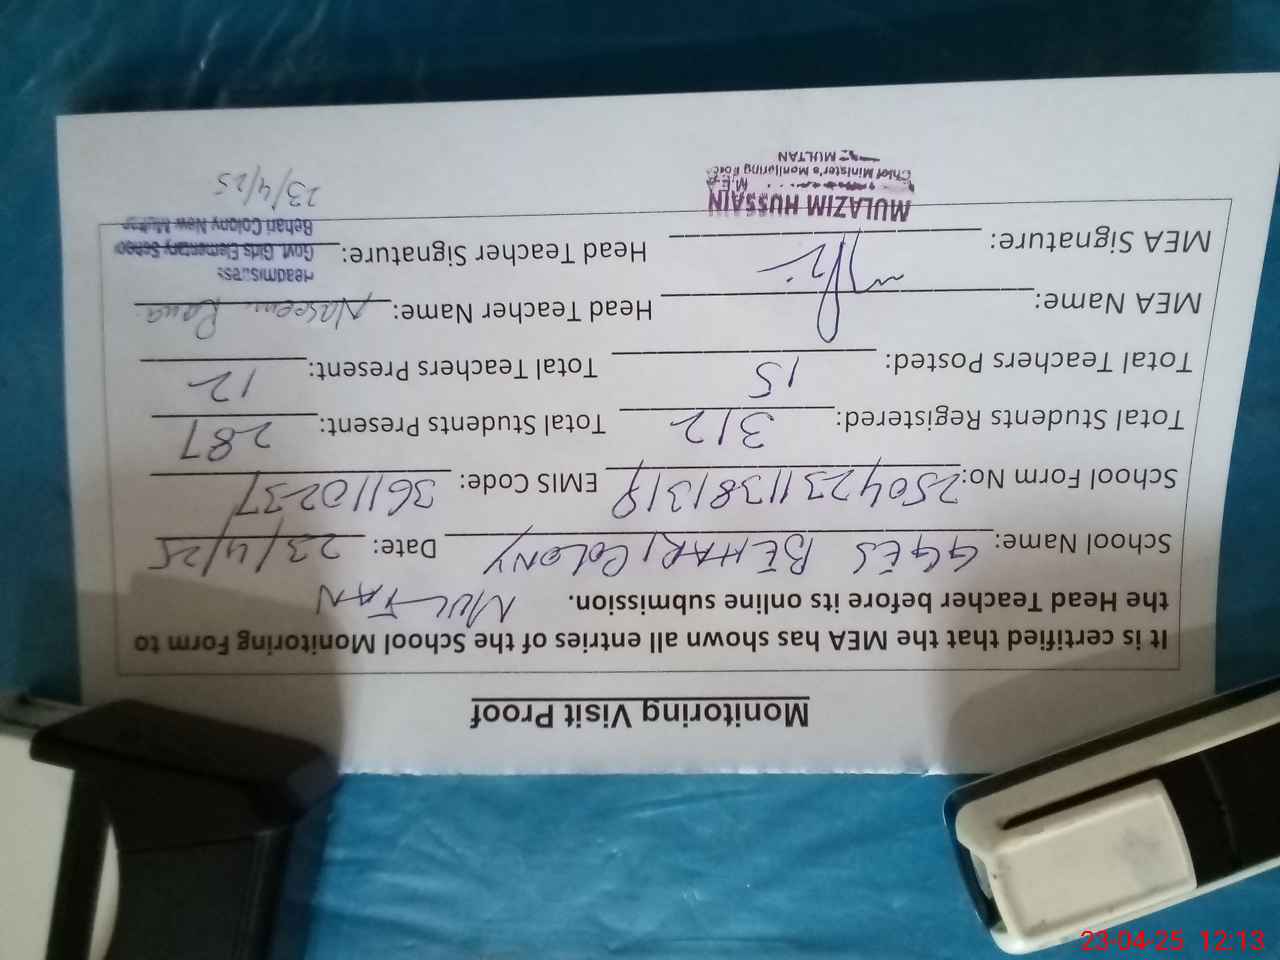 Monitoring Visit Proof
It is certified that the MEA has shown all entries of the School Monitoring Form to
the Head Teacher before its online submission. MULTAN
School Name: GGES BEHARI COLONY Date: 23/4/25
School Form No: 25042311381318 EMIS Code: 36110237
Total Students Registered: 312 Total Students Present: 287
Total Teachers Posted: 15 Total Teachers Present: 12
MEA Name: Head Teacher Name: Naseem
MEA Signature: Head Teacher Signature:
Headmistress
Govt. Girls Elementary School
Behari Colony New Multan
23/4/25
MULAZIM HUSSAIN
M.E.A
Chief Minister's Monitoring Force
MULTAN
23-04-25 12:13